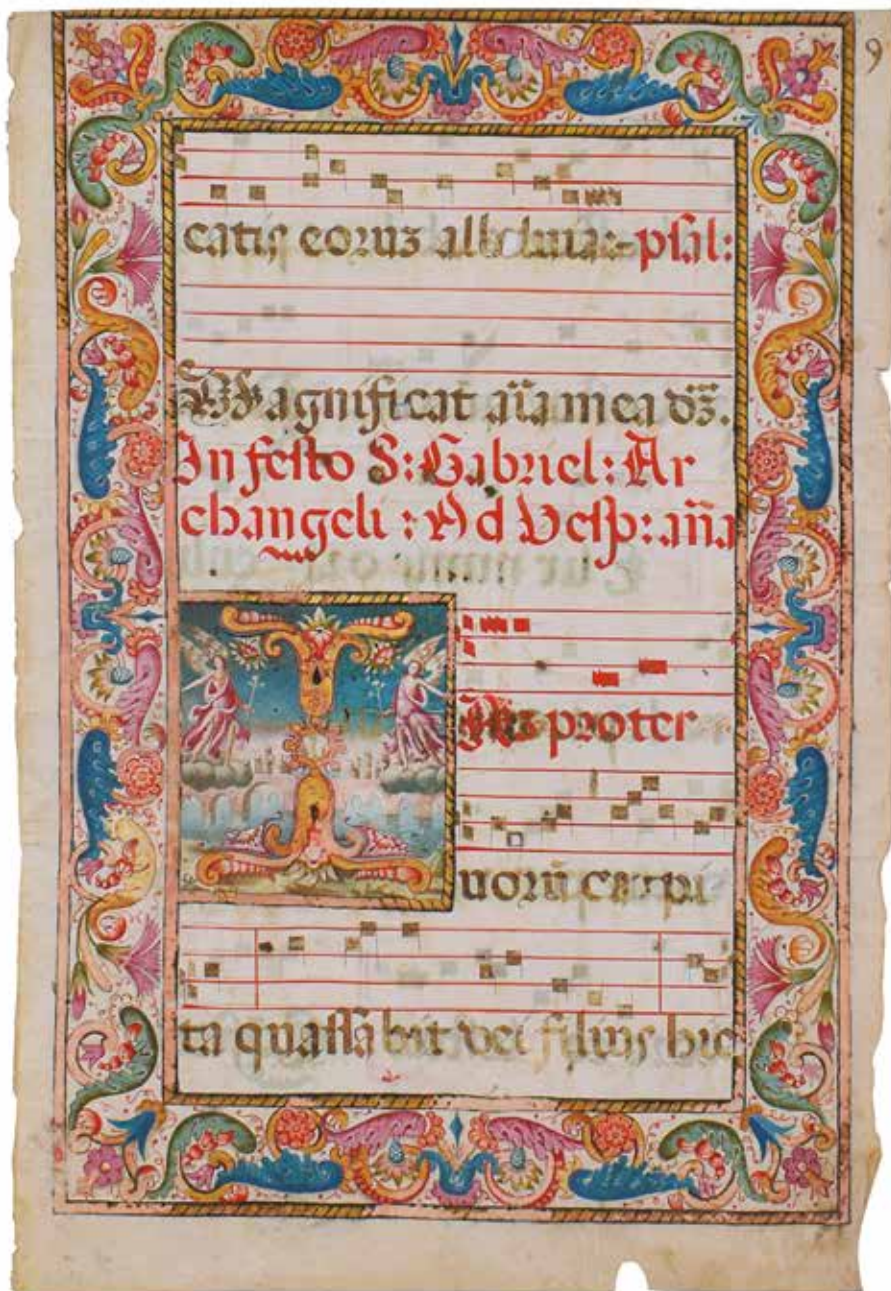 9
catis eoruz alleluia psal:
Magnificat aīa mea dz̄.
In festo S: Gabriel: Ar
changeli : Ad Vesp: an̄a
I proter
uorū capi
ta quassabit dei filius hic